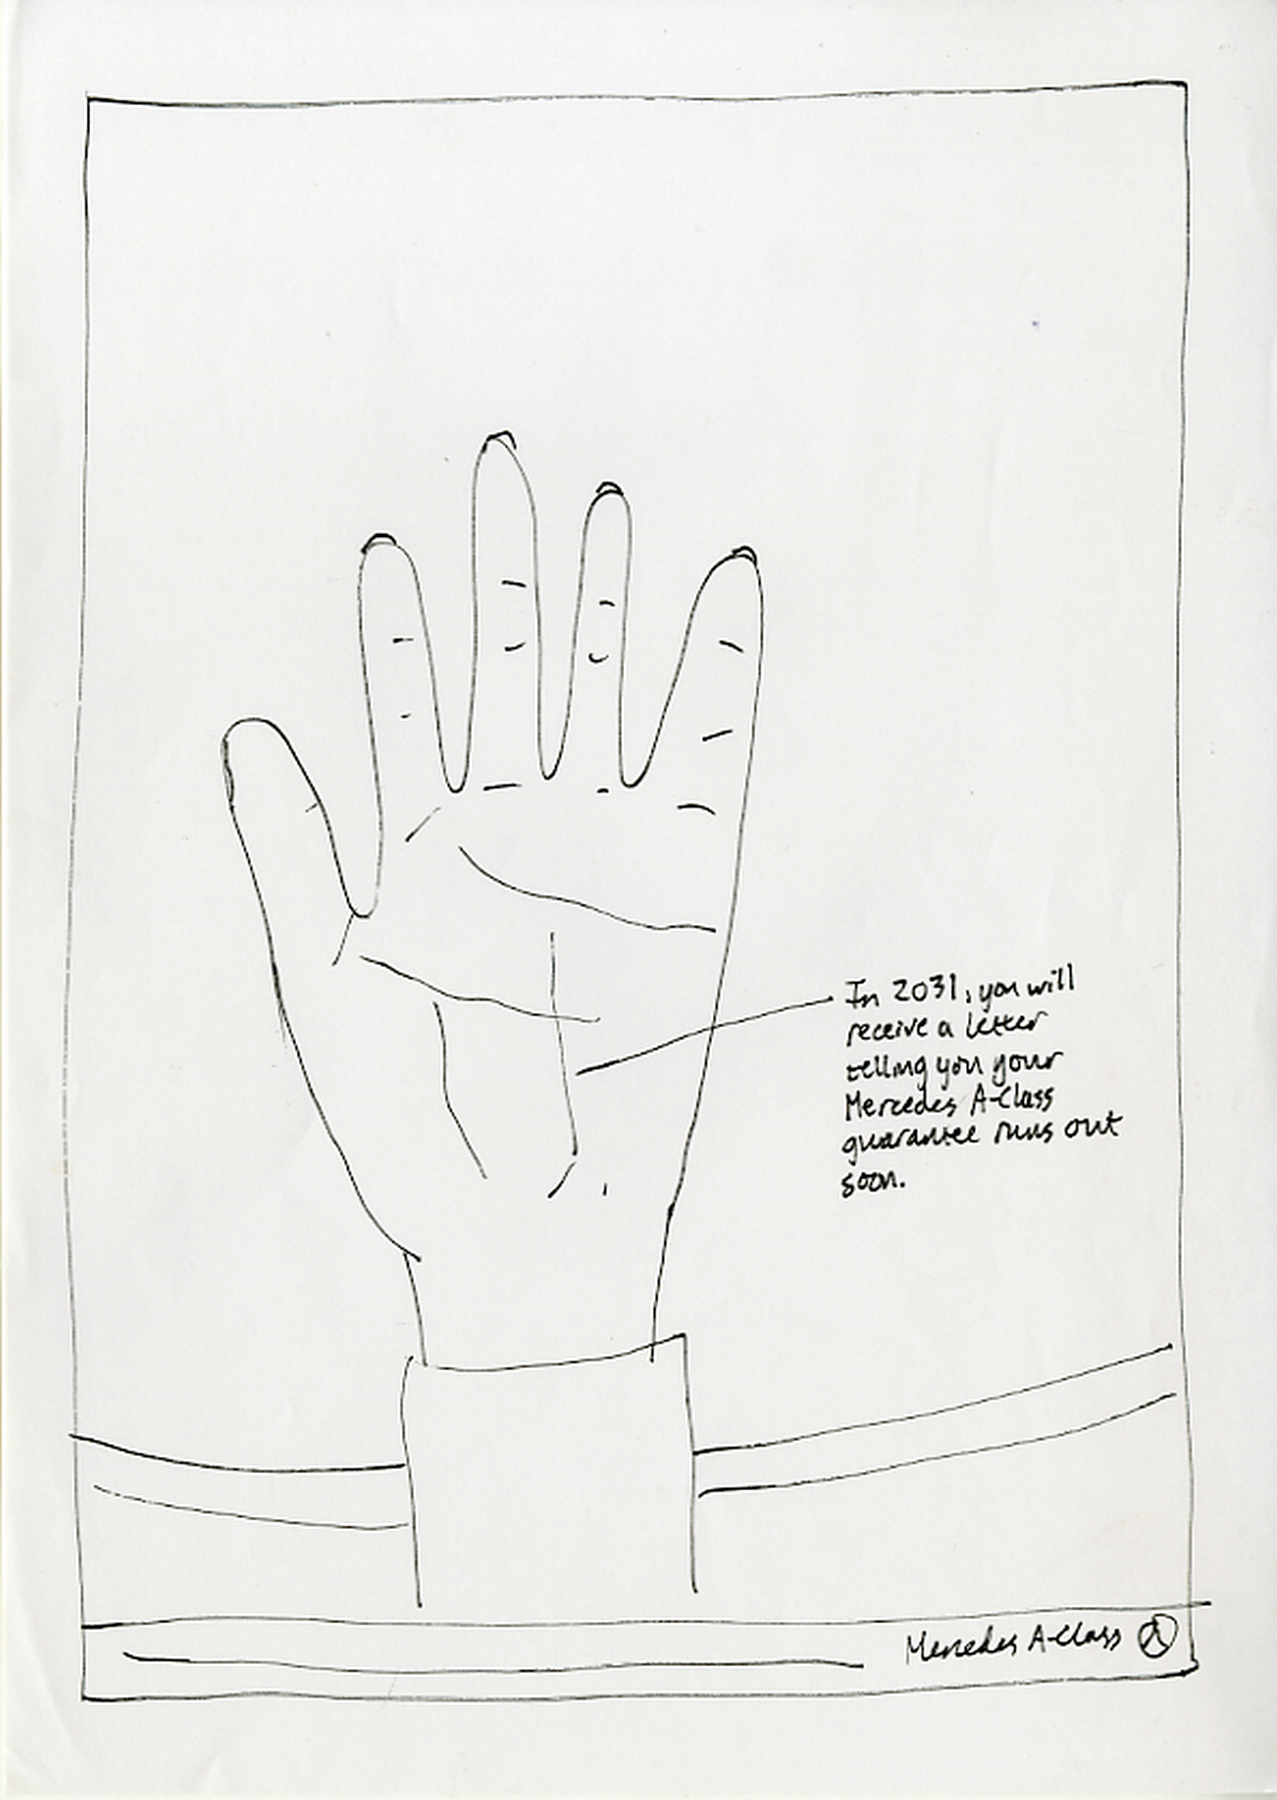 In 2031, you will
receive a letter
telling you your
Mercedes A-Class
guarantee runs out
soon.
Mercedes A-Class